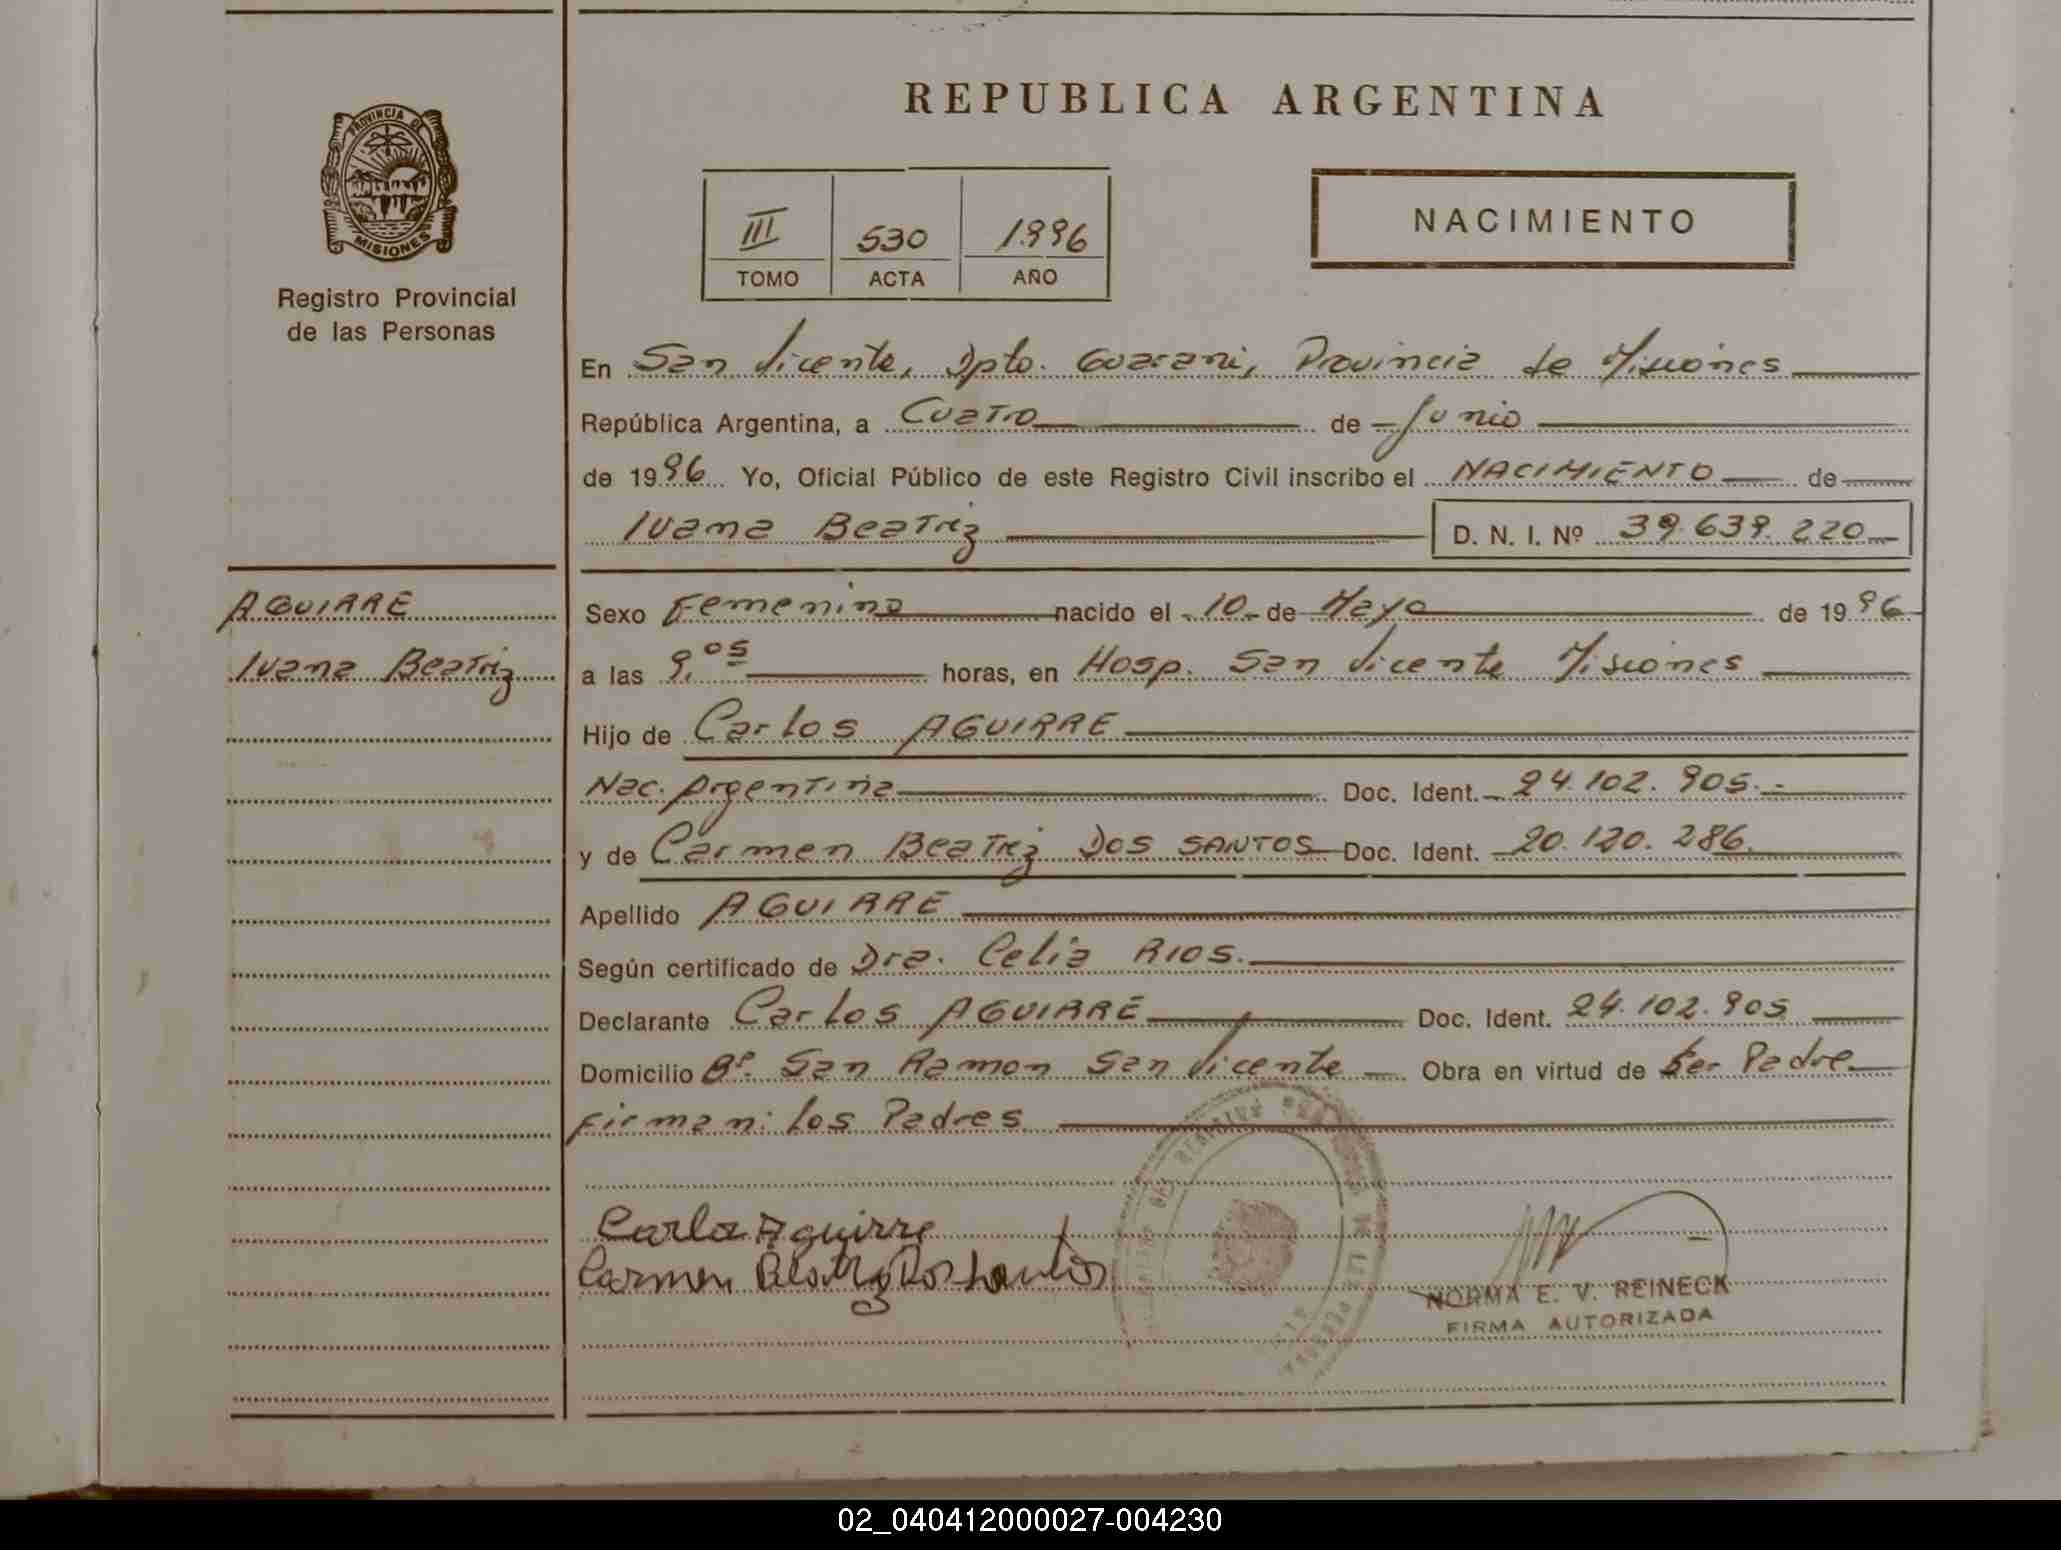 REPUBLICA ARGENTINA
PROVINCIA DE
MISIONES
Registro Provincial
de las Personas
III 530 1996
TOMO ACTA AÑO
NACIMIENTO
En San Vicente, Dpto. Guarani, Provincia de Misiones
República Argentina, a Cuatro de Junio
de 1996 Yo, Oficial Público de este Registro Civil inscribo el NACIMIENTO de
Ivana Beatriz D. N. I. Nº 39.639.220
AGUIRRE
Ivana Beatriz
Sexo Femenino nacido el 10 de Mayo de 1996
a las 9,05 horas, en Hosp. San Vicente Misiones
Hijo de Carlos AGUIRRE
Nac. Argentina Doc. Ident. 24.102.905.-
y de Carmen Beatriz DOS SANTOS Doc. Ident. 20.120.286.
Apellido AGUIRRE
Según certificado de Dra. Celia RIOS.
Declarante Carlos AGUIRRE Doc. Ident. 24.102.905
Domicilio Bº. San Ramon San Vicente Obra en virtud de ser Padre
Firman: los Padres
Carlos Aguirre
Carmen Beatriz Dos Santos
NORMA E. V. REINECK
FIRMA AUTORIZADA
02_040412000027-004230